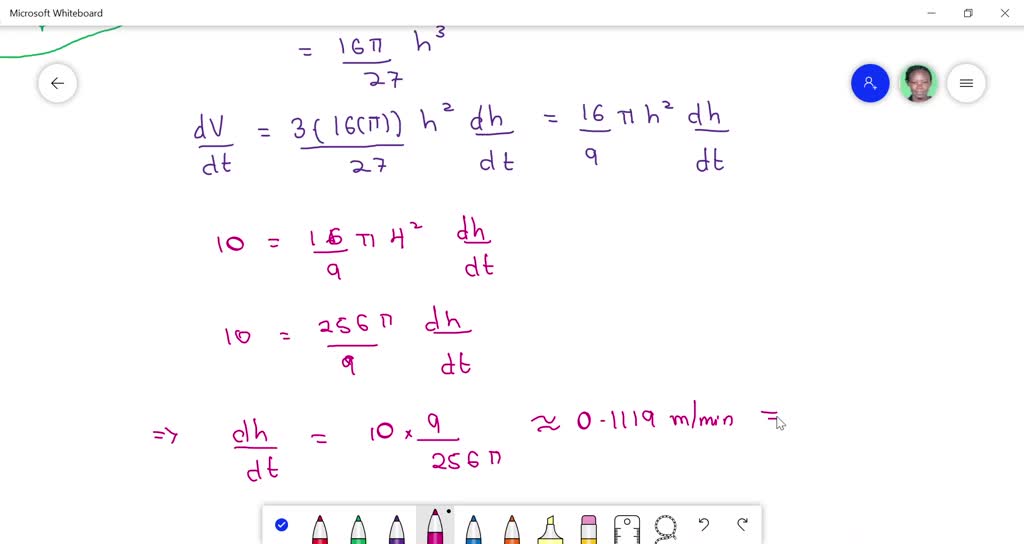 Microsoft Whiteboard
= 16π/27 h³
dV/dt = 3(16(π))/27 h² dh/dt = 16/9 π h² dh/dt
10 = 16/9 π 4² dh/dt
10 = 256π/9 dh/dt
=> dh/dt = 10 × 9/256π ≈ 0.1119 m/min =